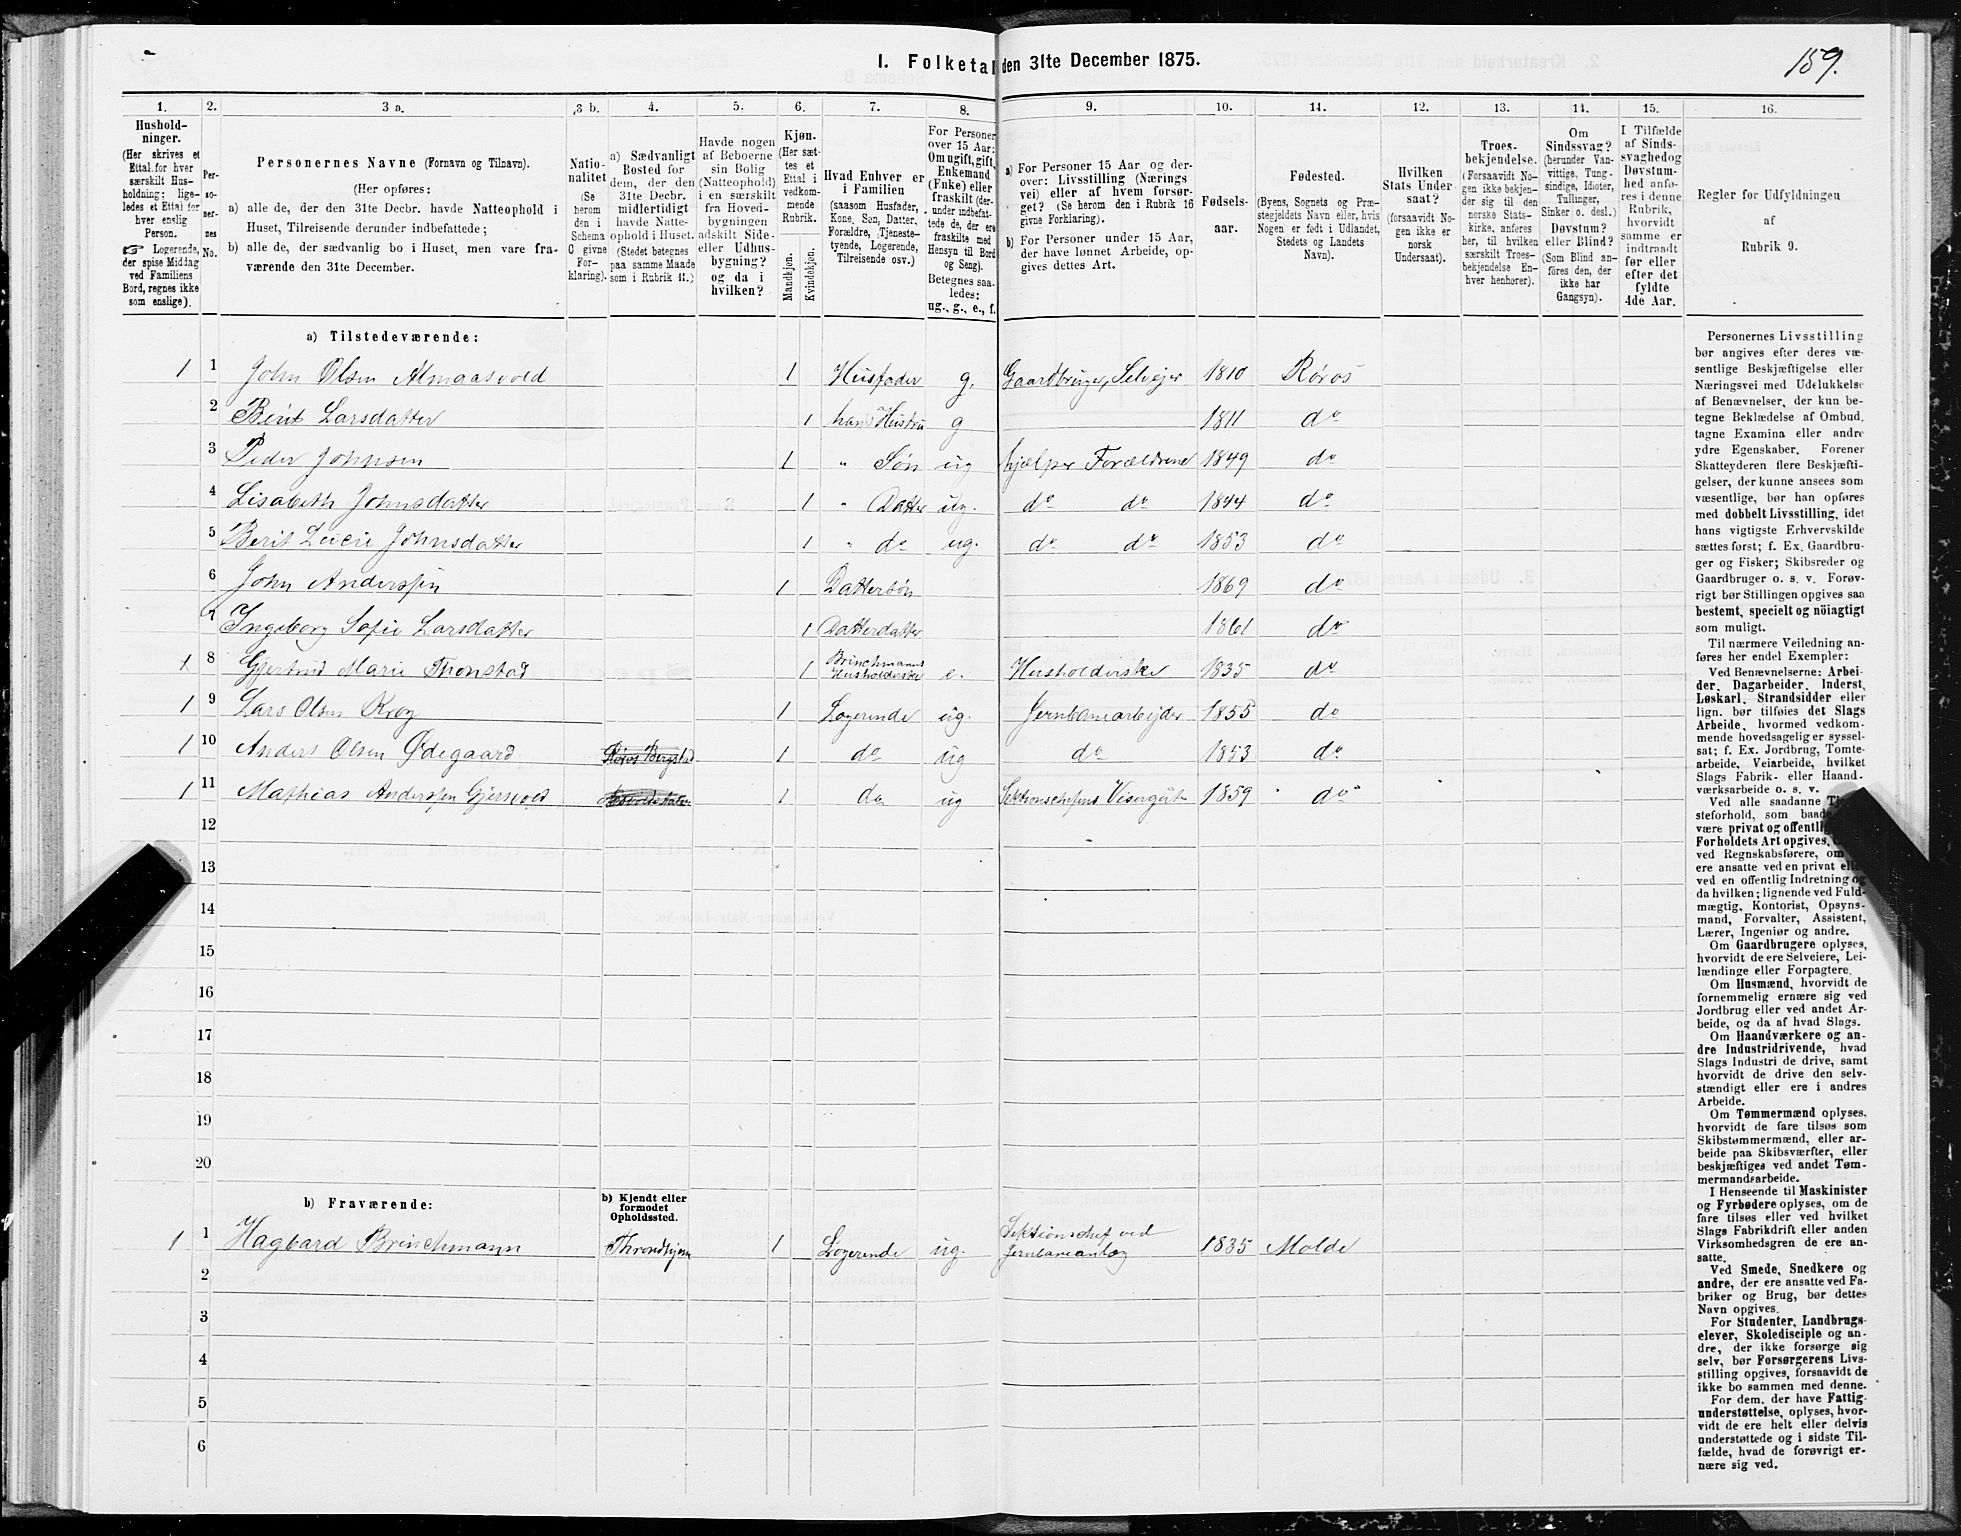 159.
I. Folketal den 31te December 1875.
1. 2. 3 a. 3 b. 4. 5. 6. 7. 8. 9. 10. 11. 12. 13. 14. 15. 16.
Hushold-
ninger.
(Her skrives et
Ettal for hver
særskilt Hus-
holdning; lige-
ledes et Ettal for
hver enslig
Person.
☞ Logerende,
der spise Middag
ved Familiens
Bord, regnes ikke
som enslige).
Per-
so-
ner-
nes
No.
Personernes Navne (Fornavn og Tilnavn).
(Her opføres:
a) alle de, der den 31te Decbr. havde Natteophold i
Huset, Tilreisende derunder indbefattede;
b) alle de, der sædvanlig bo i Huset, men vare fra-
værende den 31te December.
Natio-
nalitet
(Se
herom
den i
Schema
C givne
For-
klaring).
a) Sædvanligt
Bosted for
dem, der den
31te Decbr.
midlertidigt
havde Natte-
ophold i Huset.
(Stedet betegnes
paa samme Maade
som i Rubrik 11.)
Havde nogen
af Beboerne
sin Bolig
(Natteophold)
i en særskilt
fra Hoved-
bygningen
adskilt Side-
eller Udhus-
bygning?
og da i
hvilken?
Kjøn.
(Her sæt-
tes et
Ettal i
vedkom-
mende
Rubrik.
Mandkjøn.
Kvindekjøn.
Hvad Enhver er
i Familien
(saasom Husfader,
Kone, Søn, Datter,
Forældre, Tjeneste-
tyende, Logerende,
Tilreisende osv.)
For Personer
over 15 Aar:
Om ugift, gift,
Enkemand
(Enke) eller
fraskilt (der-
under indbefat-
tede de, der ere
fraskilte med
Hensyn til Bord
og Seng).
Betegnes saa-
ledes:
ug., g., e., f.
a) For Personer 15 Aar og der-
over: Livsstilling (Nærings
vei) eller af hvem forsør-
get? (Se herom den i Rubrik 16
givne Forklaring).
b) For Personer under 15 Aar,
der have lønnet Arbeide, op-
gives dettes Art.
Fødsels-
aar.
Fødested.
(Byens, Sognets og Præ-
stegjeldets Navn eller, hvis
Nogen er født i Udlandet,
Stedets og Landets
Navn).
Hvilken
Stats Under-
saat?
(forsaavidt No-
gen ikke er
norsk
Undersaat).
Troes-
bekjendelse.
(Forsaavidt No-
gen ikke bekjen-
der sig til den
norske Stats-
kirke, anføres
her, til hvilken
særskilt Troes-
bekjendelse En-
hver henhører).
Om
Sindssvag?
(herunder Van-
vittige, Tung-
sindige, Idioter,
Tullinger,
Sinker o. desl.)
Døvstum?
eller Blind?
(Som Blind an-
føres den, der
ikke har
Gangsyn).
I Tilfælde
af Sinds-
svaghed og
Døvstum-
hed anfø-
res i denne
Rubrik,
hvorvidt
samme er
indtraadt
før eller
efter det
fyldte
4de Aar.
Regler for Udfyldningen
af
Rubrik 9.
a) Tilstedeværende:
1 1 John Olsen Almaasvold 1 Husfader g. Gaardbruger, Selvejer 1810 Røros
2 Berit Larsdatter 1 hans Hustru g 1811 do
3 Peder Johnsen 1 " Søn ug hjælper Forældrene 1849 do
4 Lisabeth Johnsdatter 1 " Datter ug. do do 1844 do
5 Berit Johnsdatter 1 " do ug. do do 1853 do
6 John Anderssen 1 Dattersøn 1869 do
7 Ingeborg Sofie Larsdatter 1 Datterdatter 1861 do
1 8 Gjertrud Marie Thonstad 1 Brinchmanns Husholderske e. Husholderske 1835 do
1 9 Lars Olsen Krog 1 Logerende ug. Jernbanearbejder 1855 do
1 10 Anders Olsen Ødegaard Røros Bergstad 1 do ug do 1853 do
1 11 Mathias Anderssen Gjersvold 1 do ug Sektionschefens Visergut 1859 do
12
13
14
15
16
17
18
19
20
b) Fraværende:
b) Kjendt eller
formodet
Opholdssted.
1 1 Hagbard Brinchmann Throndhjem 1 Logerende ug. Sektionschef ved Jernbaneanlæg 1835 Molde
2
3
4
5
6
Personernes Livsstilling
bør angives efter deres væ-
sentlige Beskjæftigelse eller
Næringsvei med Udelukkelse
af Benævnelser, der kun be-
tegne Beklædelse af Ombud,
tagne Examina eller andre
ydre Egenskaber. Forener
Skatteyderen flere Beskjæfti-
gelser, der kunne ansees som
væsentlige, bør han opføres
med dobbelt Livsstilling, idet
hans vigtigste Erhvervskilde
sættes først; f. Ex. Gaardbru-
ger og Fisker; Skibsreder og
Gaardbruger o. s. v. Forøv-
rigt bør Stillingen opgives saa
bestemt, specielt og nöiagtigt
som muligt.
Til nærmere Veiledning an-
føres her endel Exempler:
Ved Benævnelserne: Arbei-
der, Dagarbeider, Inderst,
Løskarl, Strandsidder eller
lign. bør tilføies det Slags
Arbeide, hvormed vedkom-
mende hovedsagelig er syssel-
sat; f. Ex. Jordbrug, Tomte-
arbeide, Veiarbeide, hvilket
Slags Fabrik- eller Haand-
værksarbeide o. s. v.
Ved alle saadanne
steforhold, som
være privat og
Forholdets Art opgives,
ved Regnskabsførere,
ere ansatte ved en privat
ved en offentlig Indretning og
da hvilken; lignende ved Fuld-
mægtig, Kontorist, Opsyns-
mand, Forvalter, Assistent,
Lærer, Ingeniør og andre.
Om Gaardbrugere oplyses,
hvorvidt de ere Selveiere, Lei-
lændinge eller Forpagtere.
Om Husmænd, hvorvidt de
fornemmelig ernære sig ved
Jordbrug eller ved andet Ar-
beide, og da af hvad Slags.
Om Haandværkere og an-
dre Industridrivende, hvad
Slags Industri de drive, samt
hvorvidt de drive den selv-
stændigt eller ere i andres
Arbeide.
Om Tømmermænd oplyses,
hvorvidt de fare tilsøs som
Skibstømmermænd, eller ar-
beide paa Skibsværfter, eller
beskjæftiges ved andet Tøm-
mermandsarbeide.
I Henseende til Maskinister
og Fyrbødere oplyses, om de
fare tilsøs eller ved hvilket
Slags Fabrikdrift eller anden
Virksomhedsgren de ere an-
satte.
Ved Smede, Snedkere og
andre, der ere ansatte ved Fa-
briker og Brug, bør dettes
Navn opgives.
For Studenter, Landbrugs-
elever, Skoledisciple og an-
dre, der ikke forsørge sig
selv, bør Forsørgerens Livs-
stilling opgives, forsaavidt de
ikke bo sammen med denne.
For dem, der have Fattig-
understøttelse, oplyses, hvor-
vidt de ere helt eller delvis
understøttede og i sidste Til-
fælde, hvad de forøvrigt er-
nære sig ved.